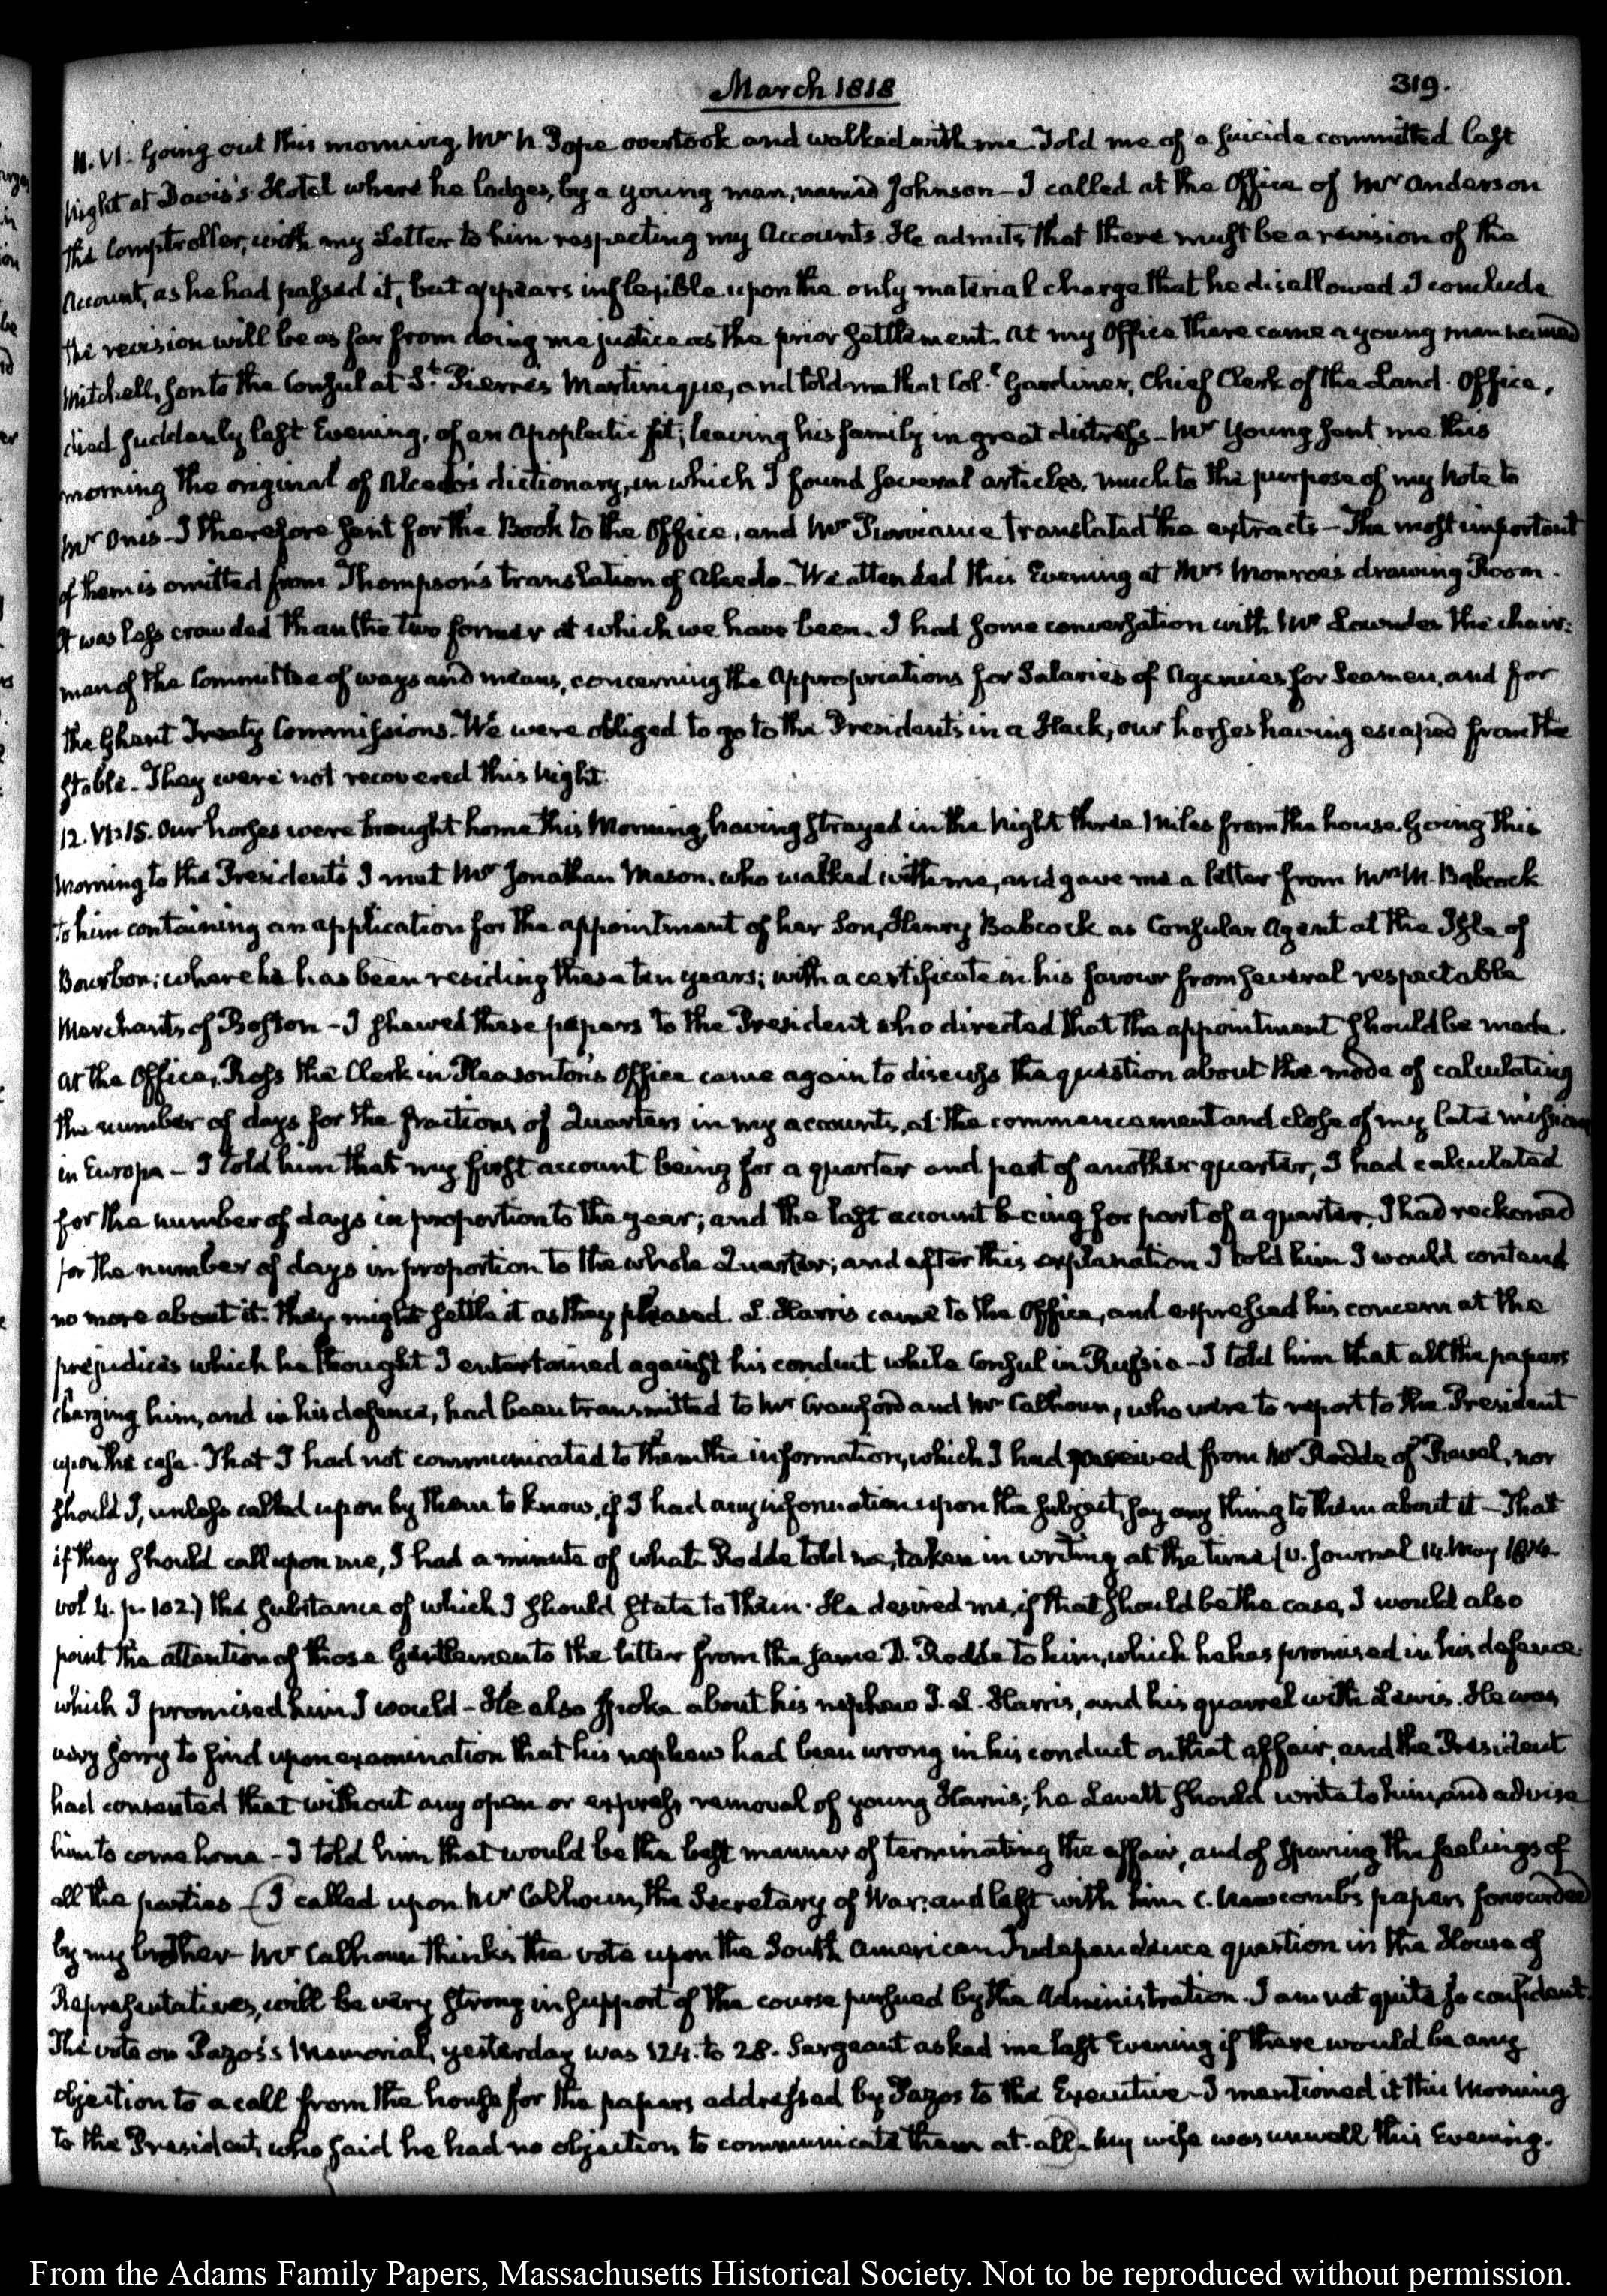 March 1818
319.
11. VI. Going out this morning, Mr N. Pope overtook and walked with me. Told me of a suicide committed last
Night at Davis's Hotel where he lodges, by a young man, named Johnson — I called at the Office of Mr Anderson
the Comptroller, with my Letter to him respecting my Accounts. He admits that there must be a revision of the
Account, as he had passed it, but appears inflexible upon the only material charge that he disallowed I conclude
the revision will be as far from doing me justice as the prior settlement. At my Office there came a young man named
Mitchell, son to the Consul at St. Pierre's Martinique, and told me that Col. Gardiner, Chief Clerk of the Land Office,
died suddenly last Evening, of an Apoplectic fit; leaving his family in great distress — Mr Young sent me this
morning the original of Alcedo's dictionary, in which I found several articles, much to the purpose of my Note to
Mr Onis — I therefore sent for the Book to the Office, and Mr Purviance translated the extracts — The most important
of them is omitted from Thompson's translation of Alcedo — We attended this Evening at Mrs Monroe's drawing Room.
It was less crowded than the two former at which we have been. I had some conversation with Mr Lowndes the chair:
man of the Committee of ways and means, concerning the Appropriations for Salaries of Agencies for Seamen, and for
the Ghent Treaty Commissions. We were obliged to go to the President's in a Hack, our horses having escaped from the
stable. They were not recovered this Night.
12. VI:15. Our horses were brought home this Morning, having strayed in the Night three Miles from the house. Going this
Morning to the President's I met Mr Jonathan Mason, who walked with me, and gave me a letter from Mrs M. Babcock
to him containing an application for the appointment of her Son, Henry Babcock as Consular Agent at the Isle of
Bourbon; where he has been residing these ten years; with a certificate in his favour from several respectable
Merchants of Boston — I shewed these papers to the President who directed that the appointment should be made.
At the Office, Ross the Clerk in Pleasonton's Office came again to discuss the question about the mode of calculating
the number of days for the fractions of Quarters in my accounts, at the commencement and close of my late missions
in Europe — I told him that my first account being for a quarter and part of another quarter, I had calculated
for the number of days in proportion to the year; and the last account being for part of a quarter, I had reckoned
for the number of days in proportion to the whole Quarter; and after this explanation I told him I would contend
no more about it. They might settle it as they pleased. L. Harris came to the Office, and expressed his concern at the
prejudices which he thought I entertained against his conduct while Consul in Russia — I told him that all the papers
charging him, and in his defence, had been transmitted to Mr Crawford and Mr Calhoun, who were to report to the President
upon the case. That I had not communicated to them the information, which I had received from Mr Rodde of Reval, nor
should I, unless called upon by them to know, if I had any information upon the subject, say any thing to them about it — That
if they should call upon me, I had a minute of what Rodde told me, taken in writing at the time (v. Journal 14. May 1814
vol 4. p. 102.) the substance of which I should state to them. He desired me, if that should be the case, I would also
point the attention of those Gentlemen to the letter from the same D. Rodde to him, which he has promised in his defence
which I promised him I would — He also spoke about his nephew J. L. Harris, and his quarrel with Lewis. He was
very sorry to find upon examination that his nephew had been wrong in his conduct on that affair, and the President
had consented that without any open or express removal of young Harris; he Levett should write to him, and advise
him to come home — I told him that would be the best manner of terminating the affair, and of sparing the feelings of
all the parties — (I called upon Mr Calhoun, the Secretary of War; and left with him C. Newcomb's papers forwarded
by my brother — Mr Calhoun thinks the vote upon the South American Independence question in the House of
Representatives, will be very strong in support of the course pursued by the Administration. I am not quite so confident.
The vote on Pazos's Memorial, yesterday was 124. to 28. Sergeant asked me last Evening if there would be any
objection to a call from the house for the papers addressed by Pazos to the Executive — I mentioned it this Morning
to the President, who said he had no objection to communicate them at all.) My wife was unwell this Evening.
From the Adams Family Papers, Massachusetts Historical Society. Not to be reproduced without permission.